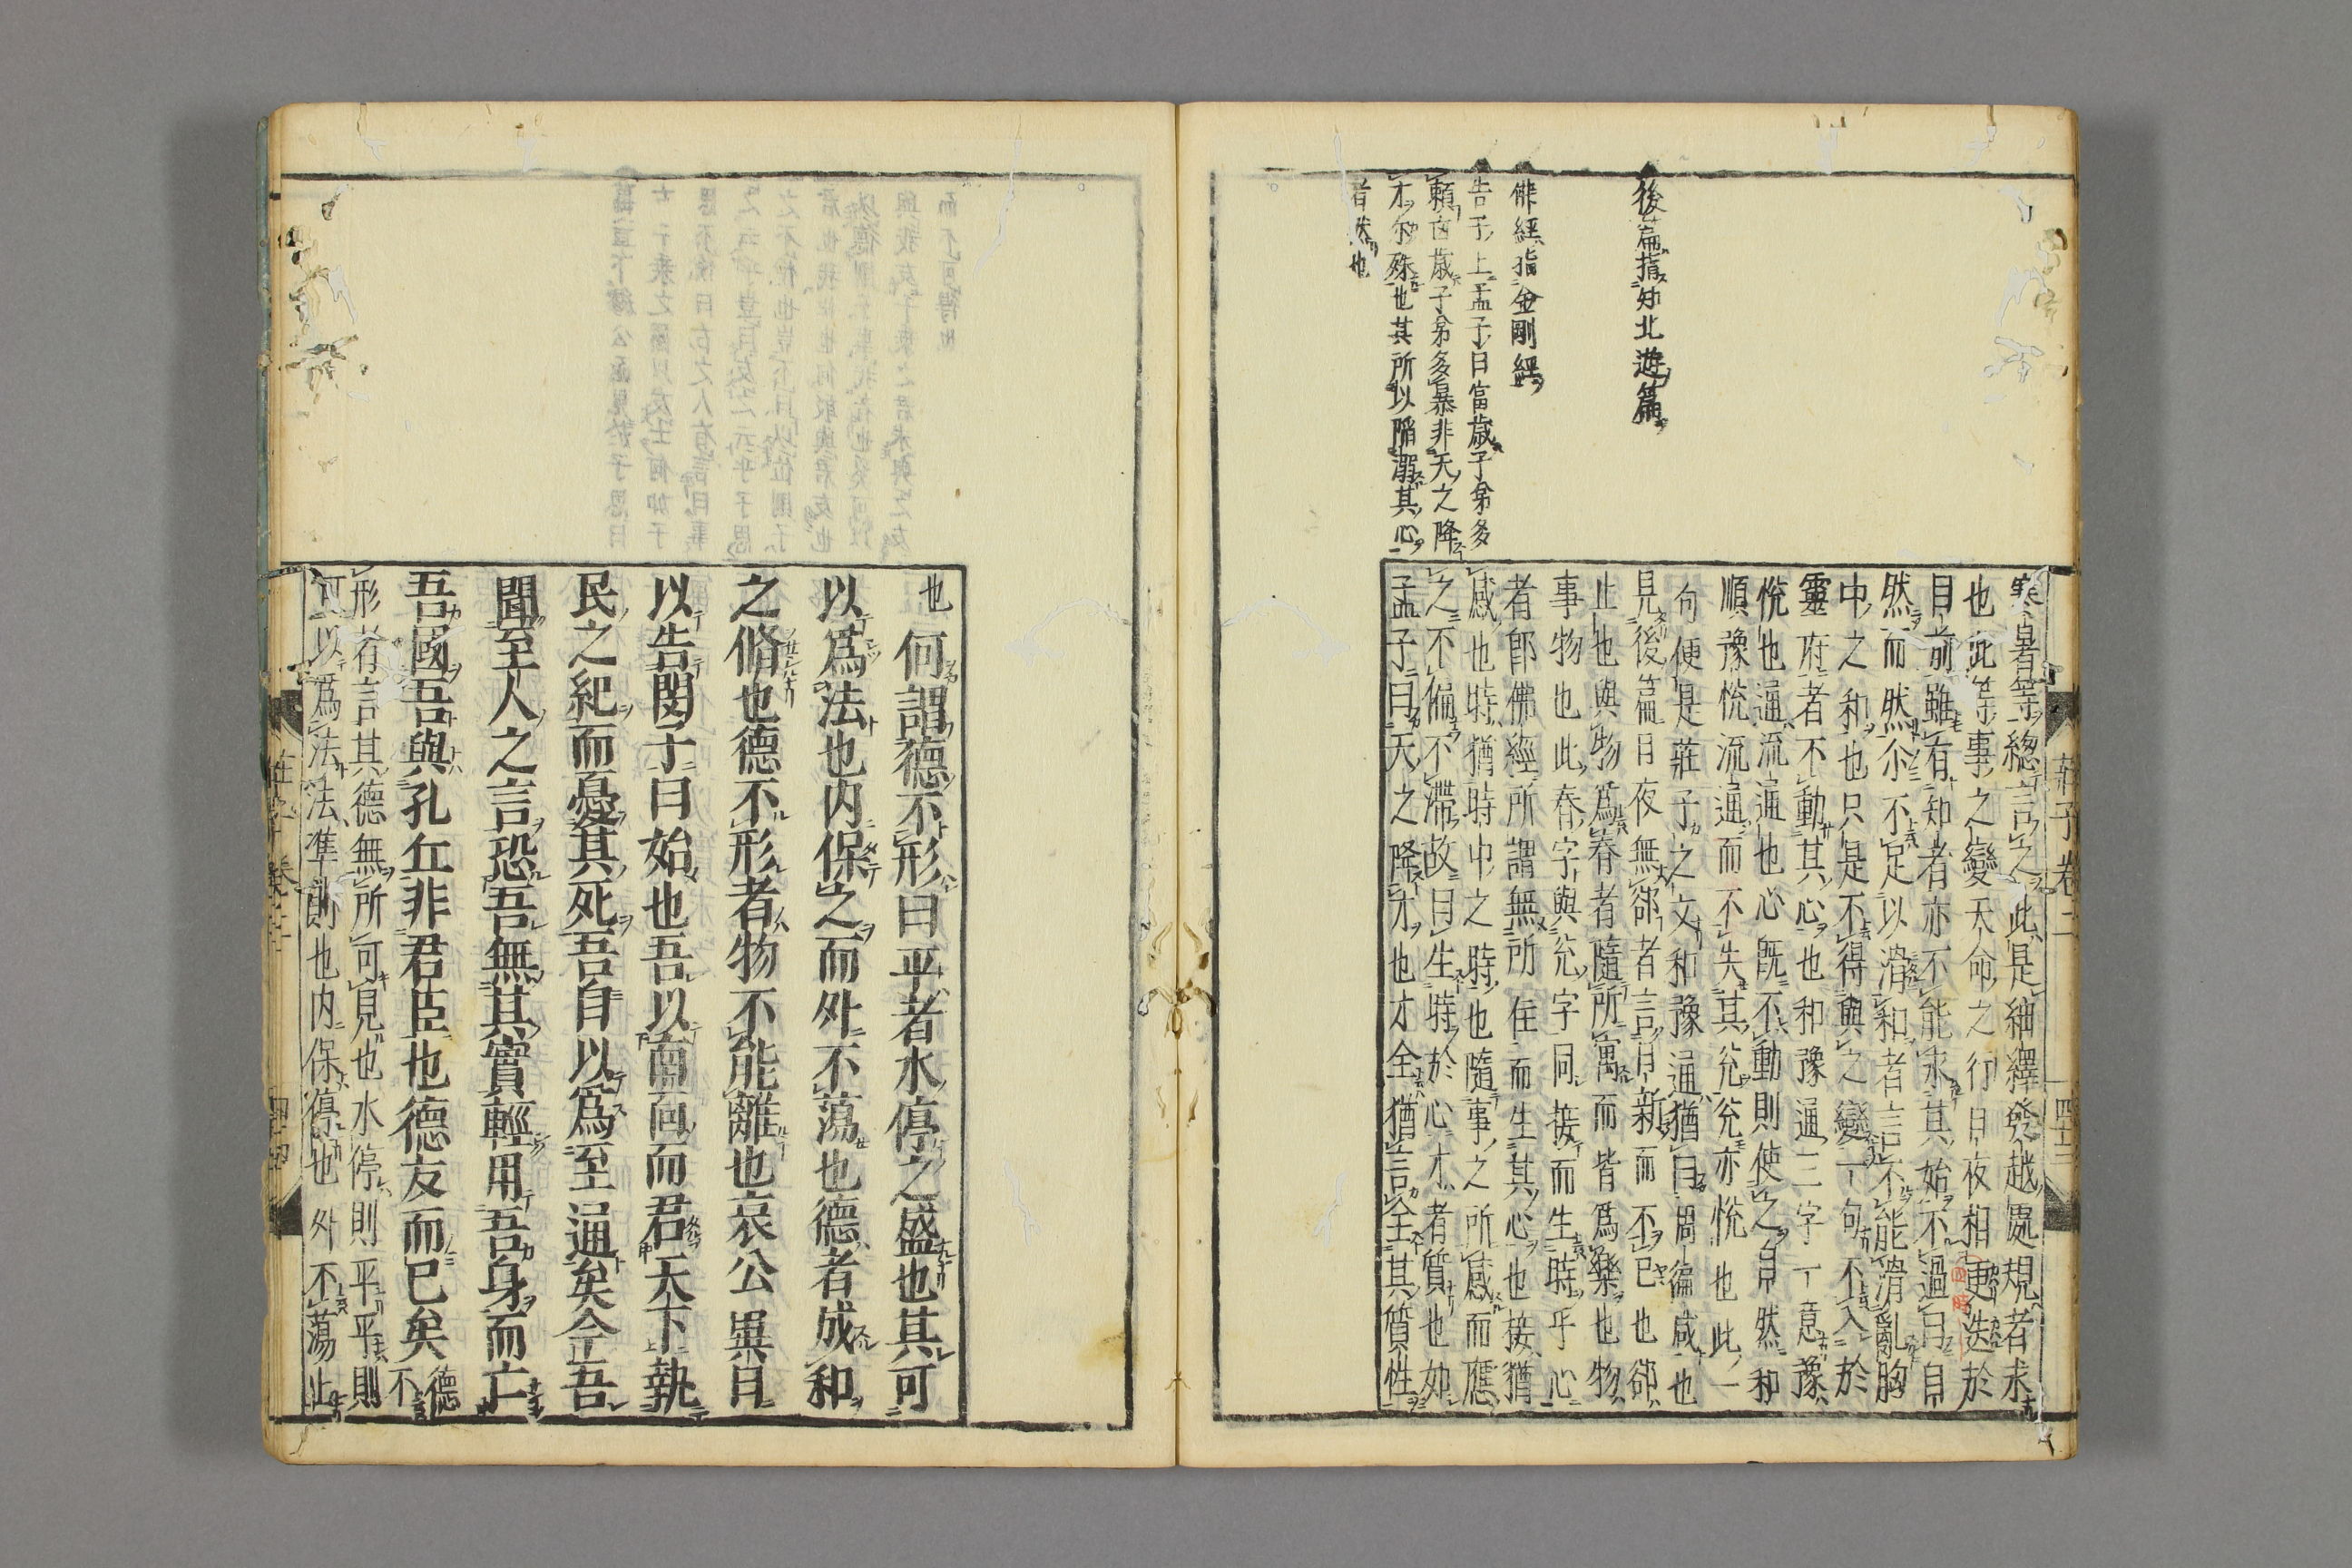 後篇指知北遊篇
佛經指金剛經
告子上孟子曰富歲子弟多
賴凶歲子弟多暴非天之降
才尓殊也其所以陥溺其心
者然也
寒暑等緫言之此是紬繹發越處規者求
也此等事之變天命之行日夜相更迭於
目前雖有知者亦不能求其始不過曰自
然而然尓不足以滑和者言不能滑亂胸
中之和也只是不得與之變一句不入於
靈府者不動其心也和豫通三字一意豫
悅也通流通也心既不動則使之自然和
順豫悅流通而不失其兊兊亦悅也此一
句便是莊子之文和豫通猶曰周徧咸也
見後篇日夜無郤者言日新而不已也郤
止也與物爲春者隨所寓而皆爲樂也物
事物也此春字與兊字同接而生時乎心
者即佛經所謂無所住而生其心也接猶
感也時猶時中之時也隨事之所感而應
之不偏不滯故曰生時於心才者質也如
孟子曰天之降才也才全猶言全其質性
莊子卷二
四十三
也何謂德不形曰平者水停之盛也其可
以爲法也内保之而外不蕩也德者成和
之脩也德不形者物不能離也哀公異日
以告閔子曰始也吾以南面而君天下執
民之紀而憂其死吾自以爲至通矣今吾
聞至人之言恐吾無其實輕用吾身而亡
吾國吾與孔丘非君臣也德友而已矣德不
形者言其德無所可見也水停則平平則
可以爲法法準則也内保停也外不蕩止